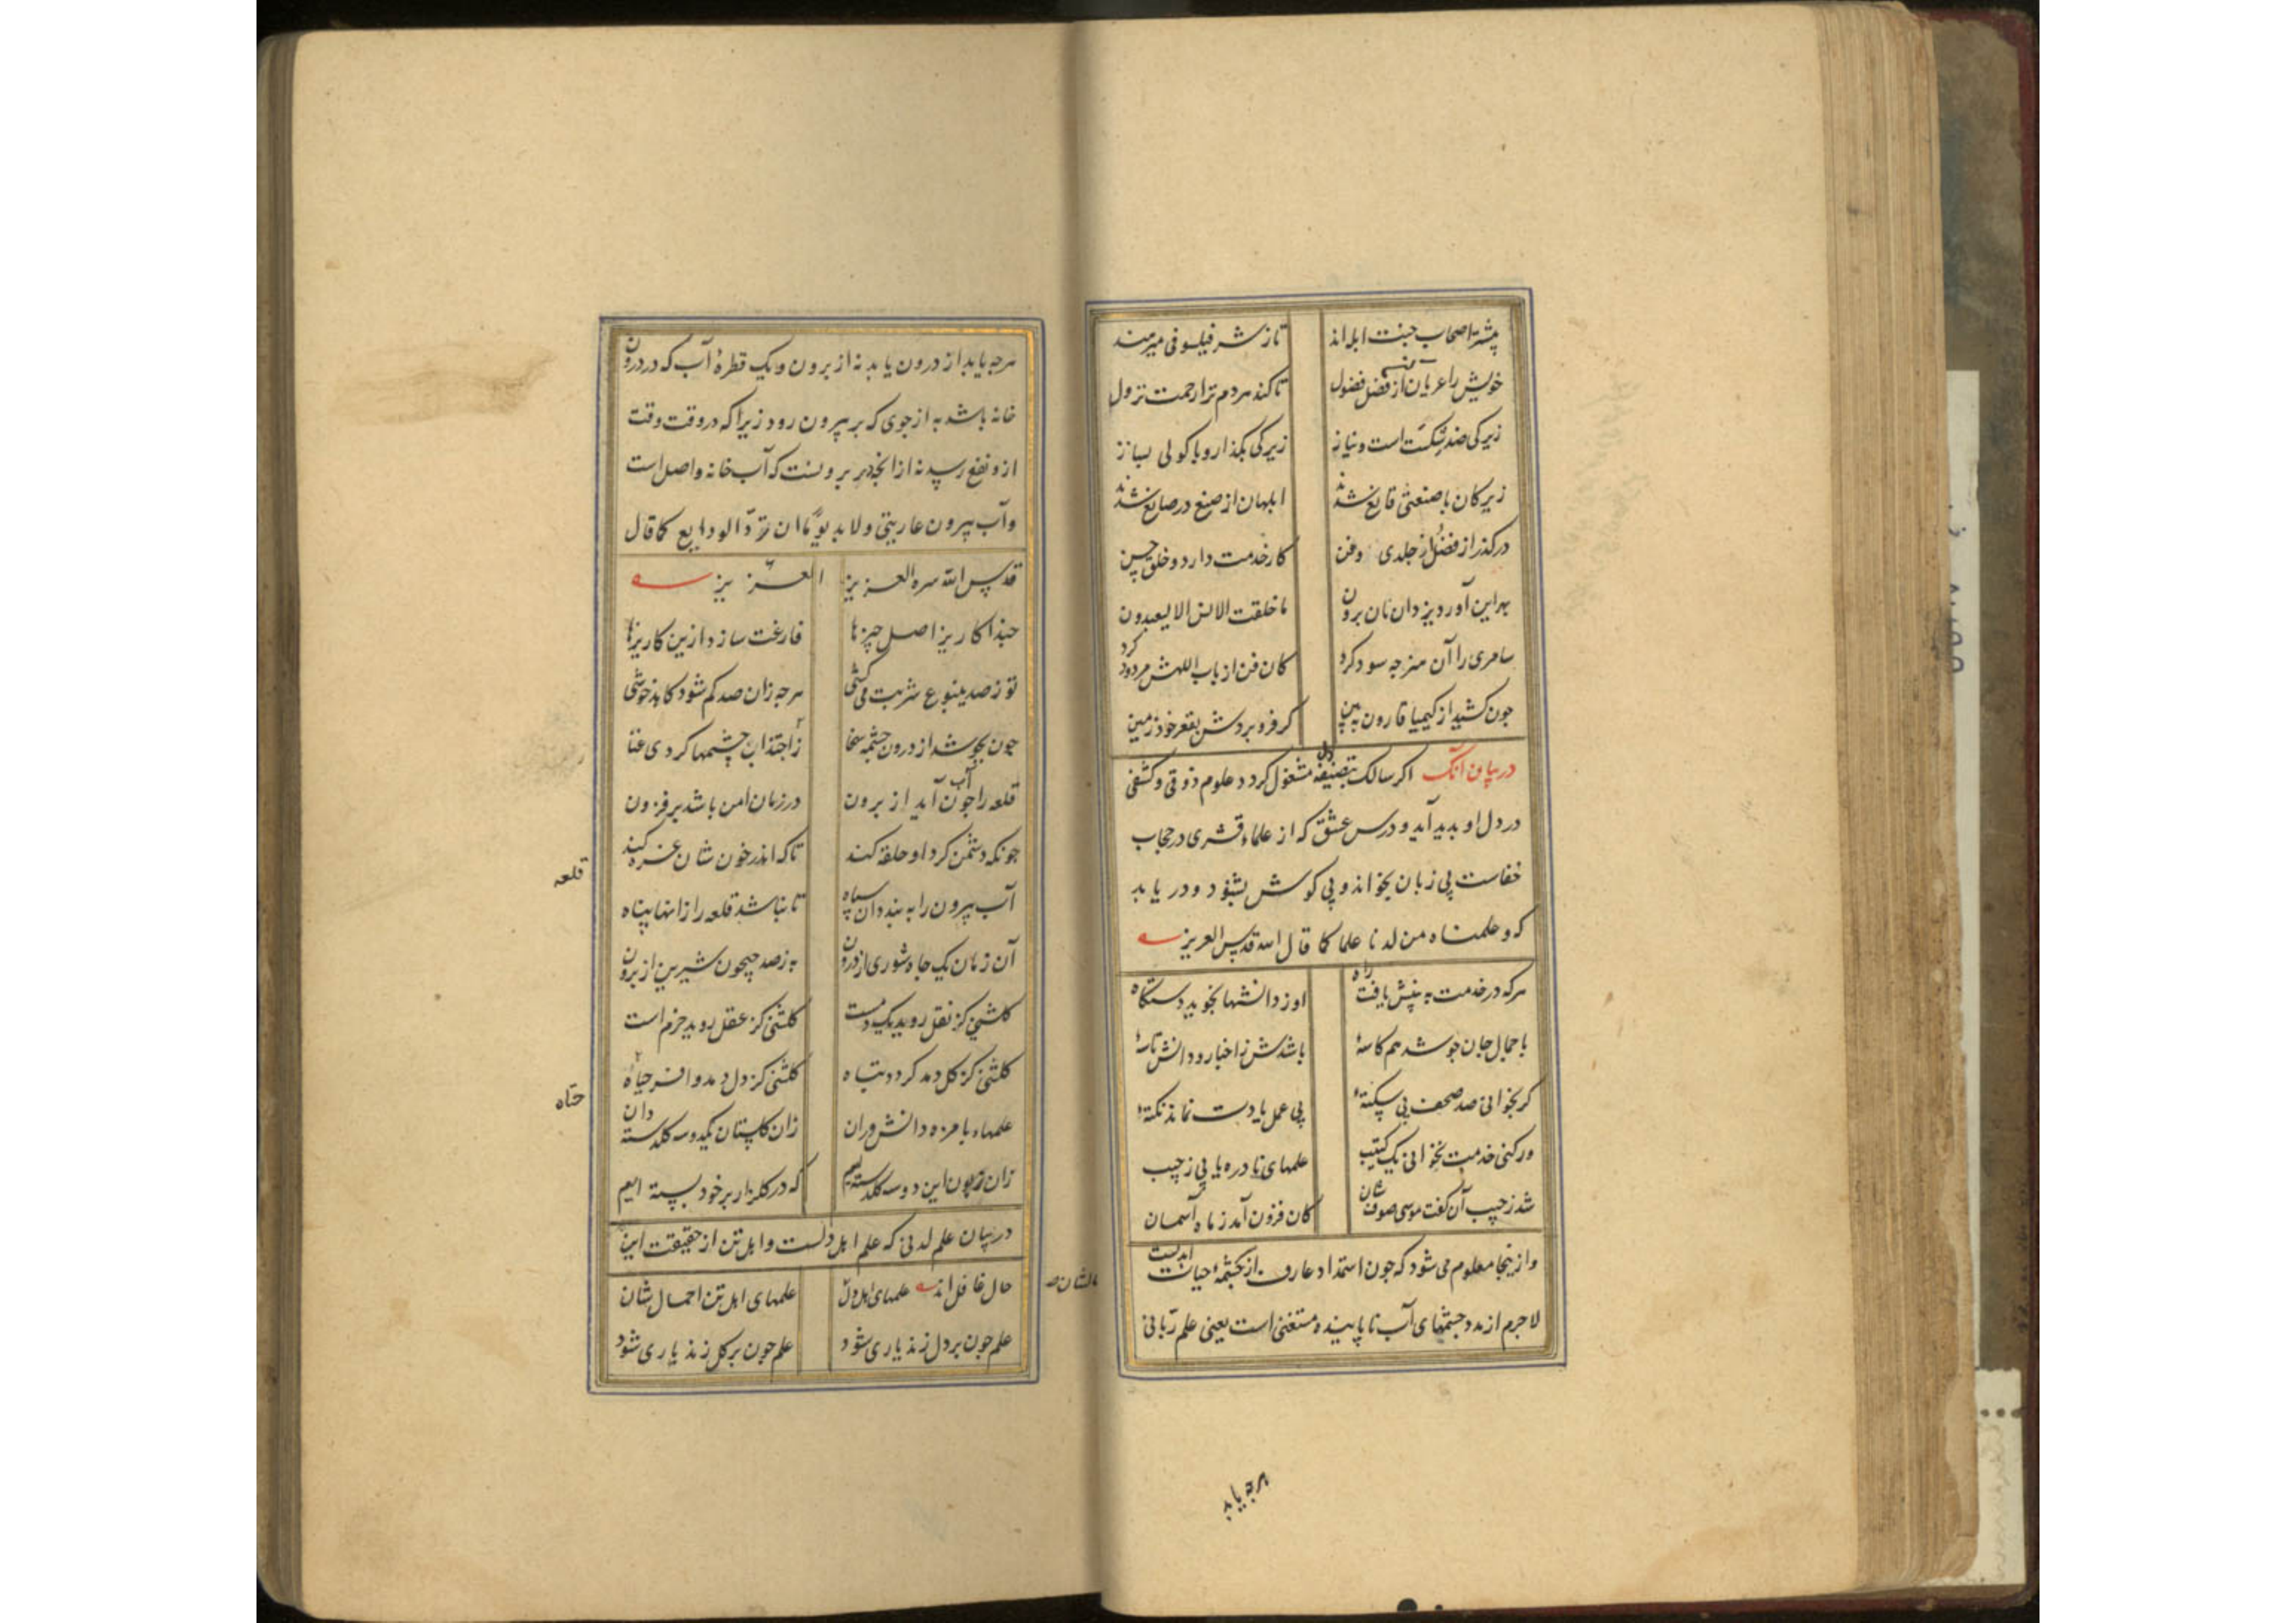 پیشتر اصحاب جنت ابله اند تا ز شر فیلسوفی میرهند
خویش را عریان کن از فضل فضول تا کند هر دم ترا رحمت نزول
زیرکی ضد شکست است و نیاز زیرکی بگذار و با کولی بساز
زیرکان با صنعتی قانع شدند ابلهان از صنع در صانع شدند
درگذر از فضل و از جلدی و فن کار خدمت دارد و خلق حسن
بهر این آورد یزدان مان برون ما خلقت الانس الا لیعبدون
سامری را آن هنر چه سود کرد کان فن از باب اللهش مردود کرد
چون کشید از کیمیا قارون ببین که فرو بردش بقعر خود زمین
در بیان آنک اگر سالک بتصفیه دل مشغول گردد علوم ذوقی و کشفی
در دل او بدید آید و درس عشق که از علماء قشری در حجاب
خفاست بی زبان بخواند و بی گوش بشنود و دریابد
که و علمناه من لدنا علما کما قال الله قدس العزیز
هر که در خدمت به بینش یافت راه او ز دانشها بجوید دستگاه
با جمال جان چو شد هم کاسهٔ باشدش ز اخبار و دانش تاسهٔ
گر بخوانی صد صحف بی سکتهٔ بی عمل یادت نماند نکتهٔ
ور کنی خدمت نخوانی یک کتیب علمهای نادره یابی ز جیب
شد ز جیب آن کفت موسی ضوفشان کان فزون آمد ز ماه آسمان
و از ینجا معلوم می شود که چون استمداد عارف از چشمهٔ حیات ابدیست
لاجرم از مدد چشمهای آب نا پاینده مستغنی است یعنی علم ربانی
هرچه یابد
هرچه یابد از درون یابد نه از برون و یک قطرهٔ آب که در درون
خانه باشد به از جوی که بر بیرون رود زیرا که در وقت وقت
ازو نفع رسد نه از آنچه بر برونست که آب خانه واصل است
و آب بیرون عاریتی ولابد یوما ان ترد الودایع کما قال
قدس الله سره العزیز العزیز
حبذا کاریز اصل چیزها فارغت سازد ازین کاریزها
تو ز صد ینبوع شربت می کشی هرچه زان صد کم شود کاهد خوشی
چون بجوشد از درون چشمه سخا ز اجتذاب چشمها گردی غنا
قلعه را چون آب آید از برون در زمان امن باشد بر فزون
چونکه دشمن گرد او حلقه کند تا که اندر خون شان غرقه کند
قلعه
آب بیرون را به بندد آن سپاه تا نباشد قلعه را زانها پناه
آن زمان یک چاه شوری از درون به ز صد جیحون شیرین از برون
گلشنی کز نقل روید یک دمست گلشنی کز عقل روید خرم است
گلشنی کز گل دمد گردد تباه گلشنی کز دل دمد وافر حیاه
علمهاء با مزه دانش وران زان گلستان یکدو سه گلدسته دان
زان زبون این دو سه گلدسته ایم که در گلزار بر خود بسته ایم
در بیان علم لدنی که علم اهل دلست و اهل تن از حقیقت این
حال غافل اند علمهای اهل دل علمهای اهل تن احمال شان
علم چون بر دل زند یاری شود علم چون بر گل زند باری شود